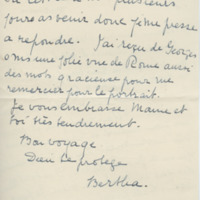 plusieurs
jours avenir donc je me presse
a repondre. J'ai reçu de Georges
une jolie vue de Rome aussi
des mots gracieuse pour me
remercier pour le portrait.
Je vous embrasse Mame et
toi très tendrement.
Bon voyage
Dieu te protège
Bertha.